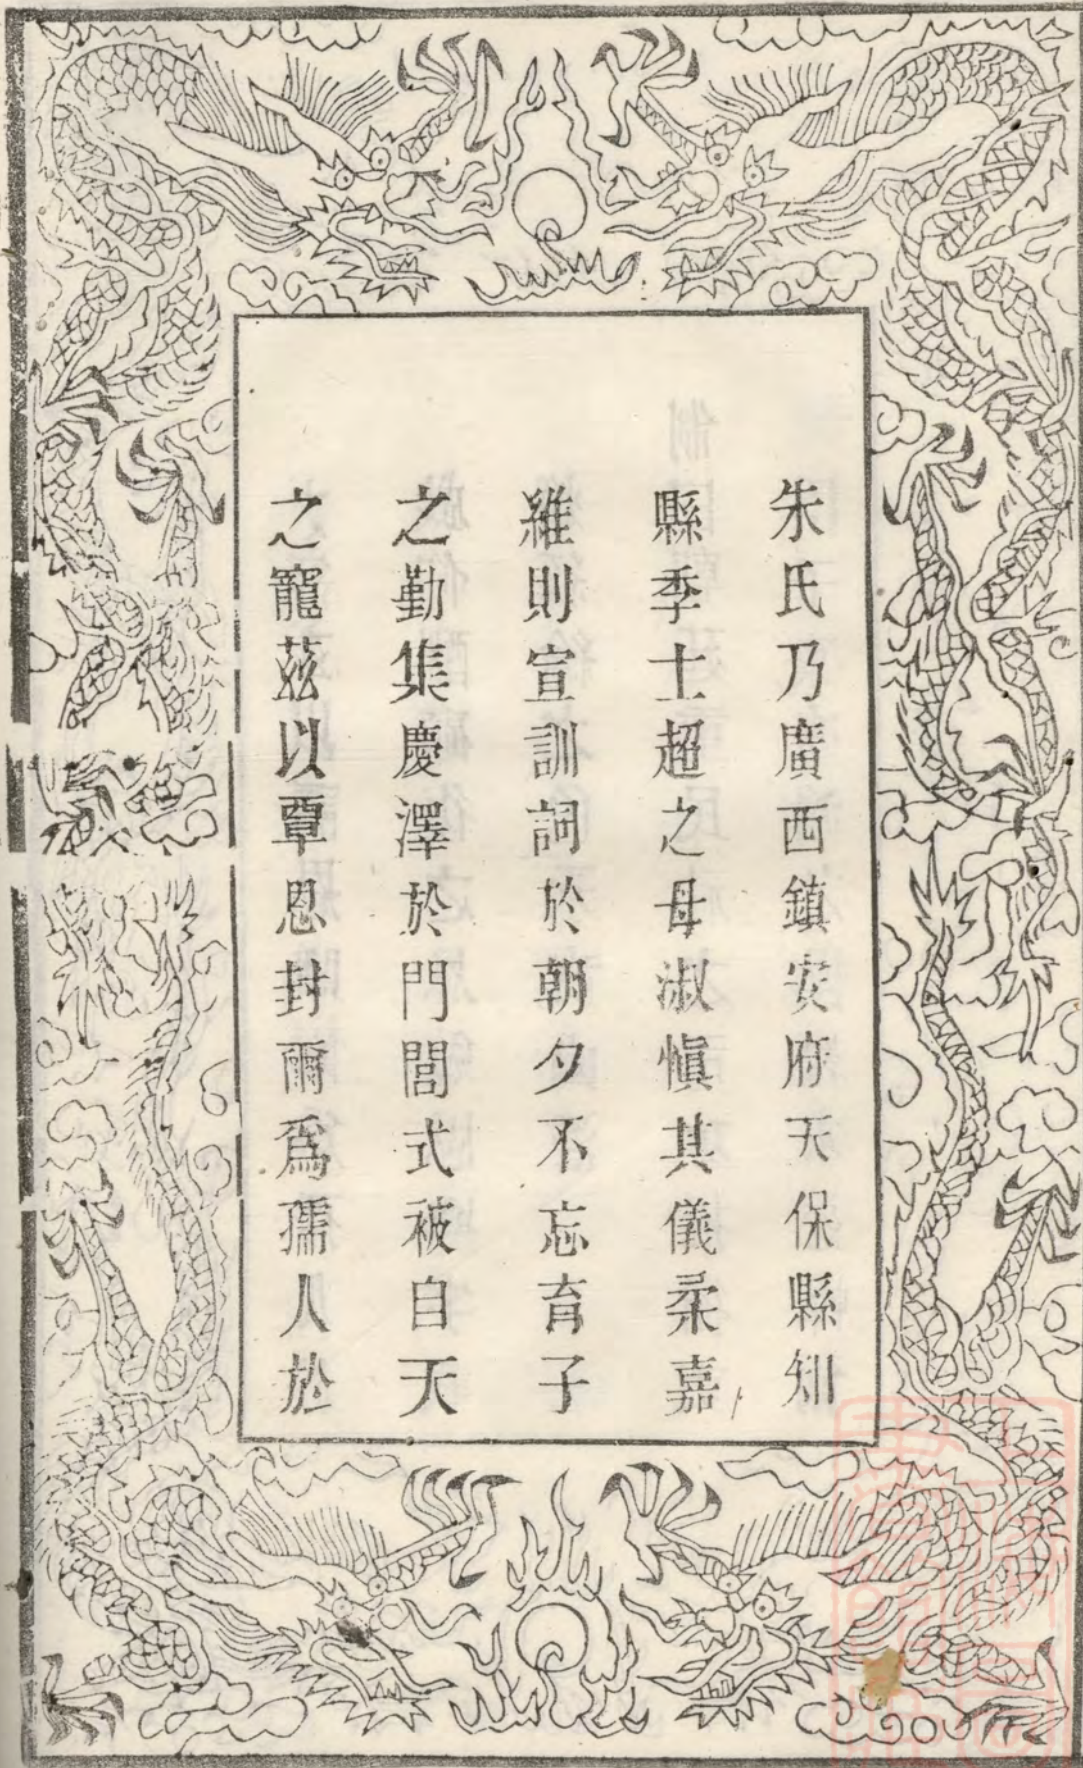 朱氏乃廣西鎮安府天保縣知
縣季士超之母淑慎其儀柔嘉
維則宣訓詞於朝夕不忘育子
之勤集慶澤於門閭式被自天
之寵茲以覃恩封爾爲孺人於